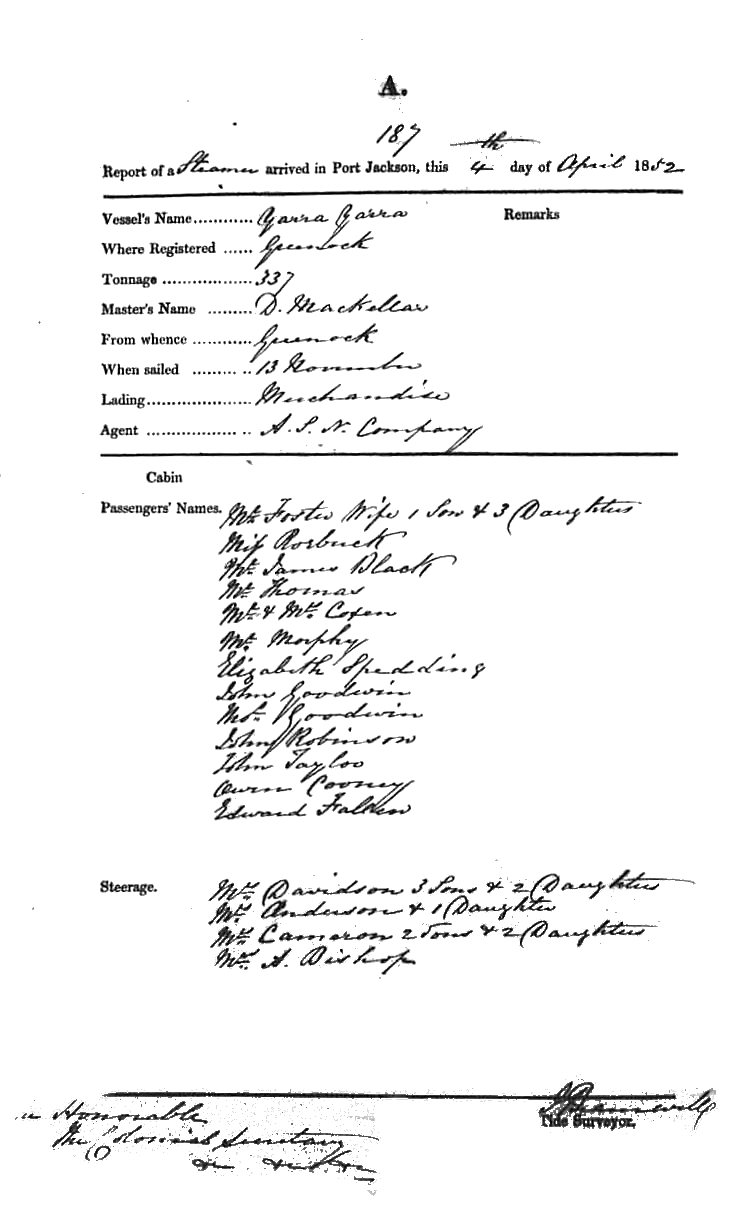 A.
187
Report of a Steamer arrived in Port Jackson, this 4th day of April 1852
Vessel's Name............ Yarra Yarra Remarks
Where Registered ...... Greenock
Tonnage .................. 337
Master's Name ......... D. Mackellar
From whence ............ Greenock
When sailed ......... .. 13 November
Lading..................... Merchandise
Agent .................. .. A. S. N. Company
Cabin
Passengers' Names. Mr. Foster Wife 1 Son & 3 Daughters
Miss Rosbuck
Mr. James Black
Mr. Thomas
Mr. & Mrs. Coxen
Mr. Morphy
Elizabeth Spedding
John Goodwin
Goodwin
John Robinson
John Taylor
Owen Cooney
Edward Fallen
Steerage. Mrs. Davidson 3 Sons & 2 Daughters
Mrs. Anderson & 1 Daughter
Mrs. Cameron 2 Sons & 2 Daughters
Mrs. A. Bishop
Honorable
The Colonial Secretary
Tide Surveyor.